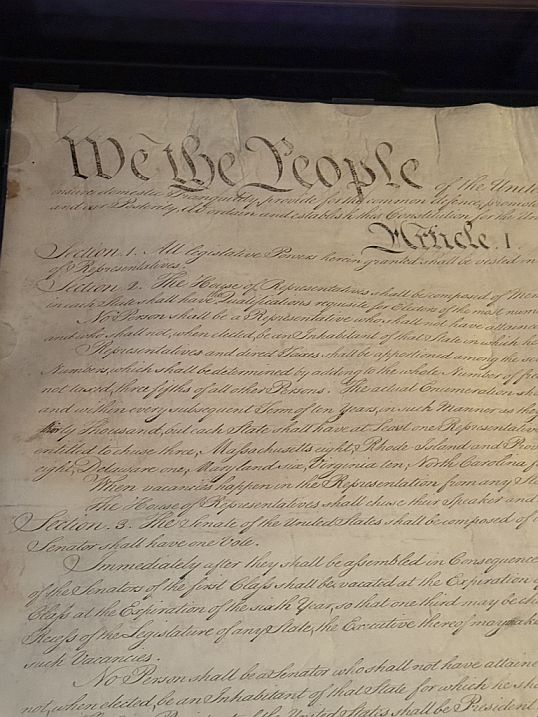 We the People of the Unite
insure domestic Tranquility, provide for the common defence, promote
and our Posterity, do ordain and establish this Constitution for the Un
Article. I.
Section. 1. All legislative Powers herein granted shall be vested in
of Representatives.
Section. 2. The House of Representatives shall be composed of Mem
in each State shall have the Qualifications requisite for Electors of the most num
No Person shall be a Representative who shall not have attaine
and who shall not, when elected, be an Inhabitant of that State in which he
Representatives and direct Taxes shall be apportioned among the se
Numbers, which shall be determined by adding to the whole Number of fr
not taxed, three fifths of all other Persons. The actual Enumeration sh
and within every subsequent Term of ten Years, in such Manner as they
thirty Thousand, but each State shall have at Least one Representative
entitled to chuse three, Massachusetts eight, Rhode Island and Prov
eight, Delaware one, Maryland six, Virginia ten, North Carolina f
When vacancies happen in the Representation from any Sta
The House of Representatives shall chuse their Speaker and
Section. 3. The Senate of the United States shall be composed of t
Senator shall have one Vote.
Immediately after they shall be assembled in Consequence
of the Senators of the first Class shall be vacated at the Expiration of
Class at the Expiration of the sixth Year, so that one third may be ch
Recess of the Legislature of any State, the Executive thereof may make
such Vacancies.
No Person shall be a Senator who shall not have attaine
not, when elected, be an Inhabitant of that State for which he sha
The Vice President of the United States shall be President